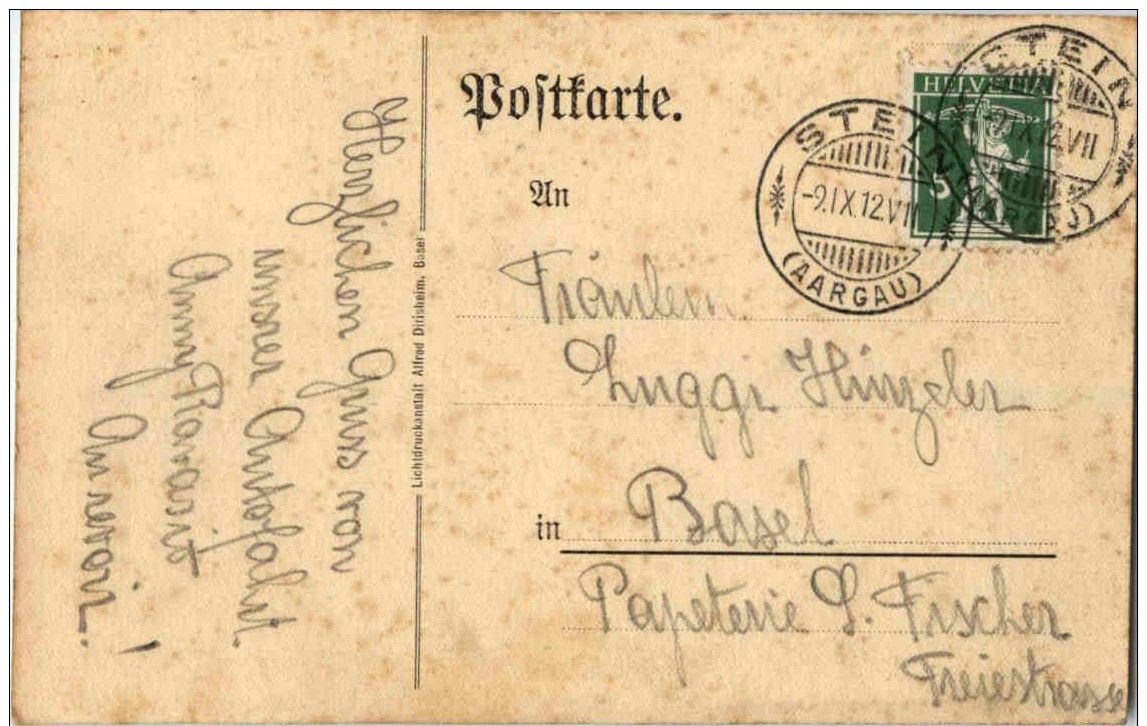 Postkarte.
HELVETIA
5
STEIN
-9.IX.12.VII
(AARGAU)
STEIN
-9.IX.12.VII
(AARGAU)
An
Fräulein
Luggi Hünzler
in Basel
Papeterie S. Fischer
Freiestrasse
Lichtdruckanstalt Alfred Ditisheim, Basel
Herzlichen Gruss von
unserer Autofahrt
Anny
Au revoir!